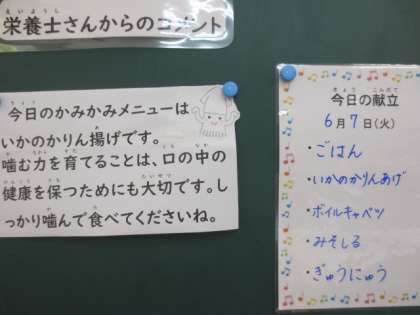 栄養士さんからのコメント
今日のかみかみメニューは
いかのかりん揚げです。
噛む力を育てることは、口の中の
健康を保つためにも大切です。し
っかり噛んで食べてくださいね。
今日の献立
6月7日(火)
・ごはん
・いかのかりんあげ
・ボイルキャベツ
・みそしる
・ぎゅうにゅう